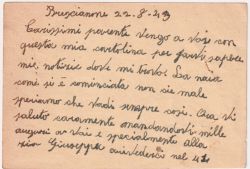 Bressanone 22-8-43
Carissimi parente vengo a Vaji con
questa mia cartolina per farvi sapere
mie notizie dove mi trovo. La naia
come si è cominciata non sie male
speriamo che Vadi sempre cosi. Ora Vi
saluto caramente mandandovi mille
auguri a Vaii e specialmente alla
zia Giuseppa arivederci nel